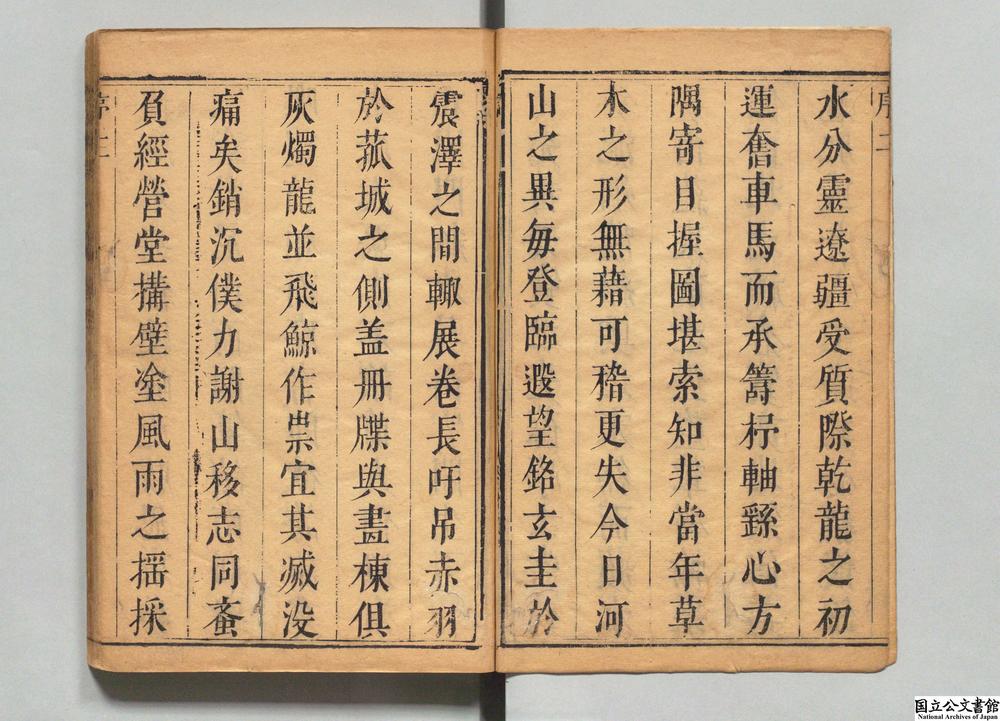 序二
水分靈遼疆受質際乾龍之初
運奮車馬而承籌杼軸繇心方
隅寄目握圖堪索知非當年草
木之形無藉可稽更失今日河
山之異每登臨遐望銘玄圭於
震澤之間輙展卷長吁吊赤羽
於菰城之側盖冊牒與畫棟俱
灰燭龍並飛鯨作祟宜其滅没
痛矣銷沉僕力謝山移志同蚉
負經營堂搆壁塗風雨之揺採
國立公文書館
National Archives of Japan